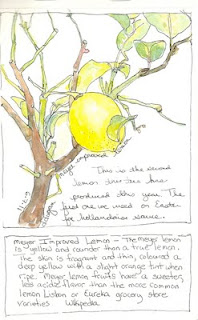 meyer improved
This is the second
lemon this tree has
produced this year. The
first one we used on Easter
for hollandaise sauce.
Meyer Improved Lemon - The Meyer lemon
is yellow and rounder than a true lemon,
the skin is fragrant and thin, coloured a
deep yellow with a slight orange tint when
ripe. Meyer lemon fruits have a sweeter,
less acidic flavor than the more common
lemon Lisbon or Eureka grocery store
varieties Wikipedia